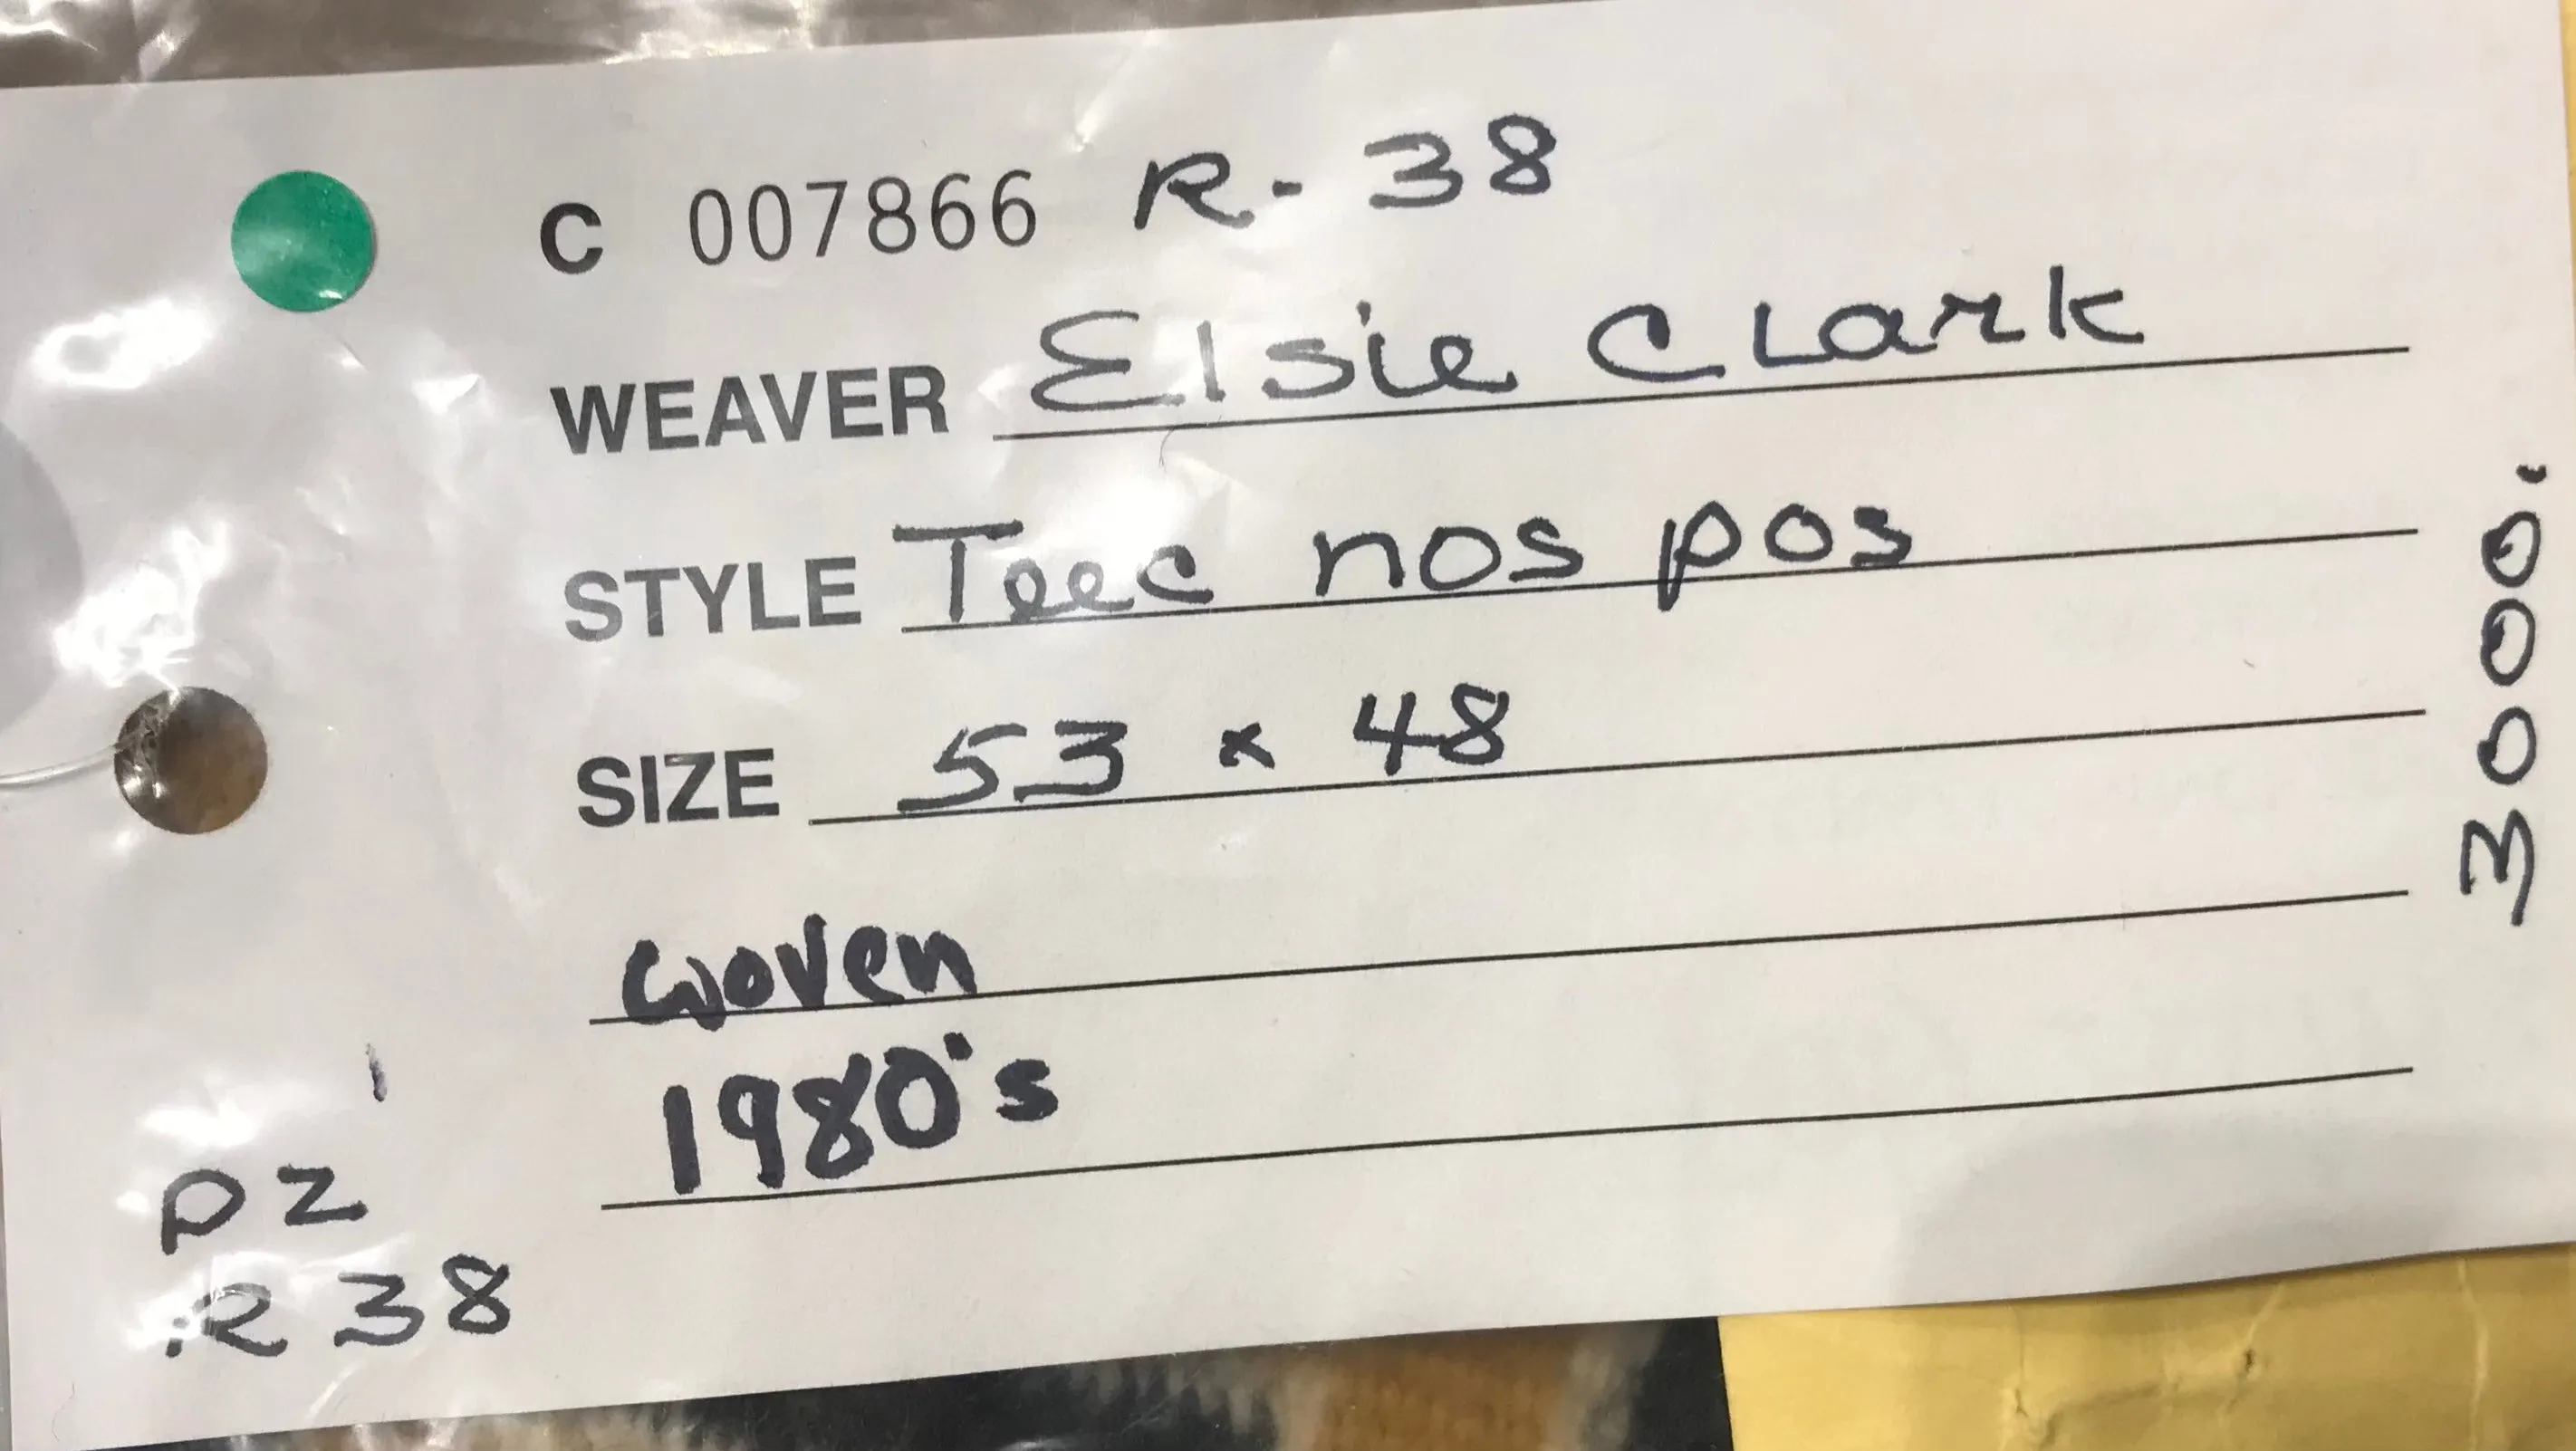 C 007866 R-38
WEAVER Elsie Clark
STYLE Teec nos pos
SIZE 53 x 48
woven
1980's
PZ
R38
3000.